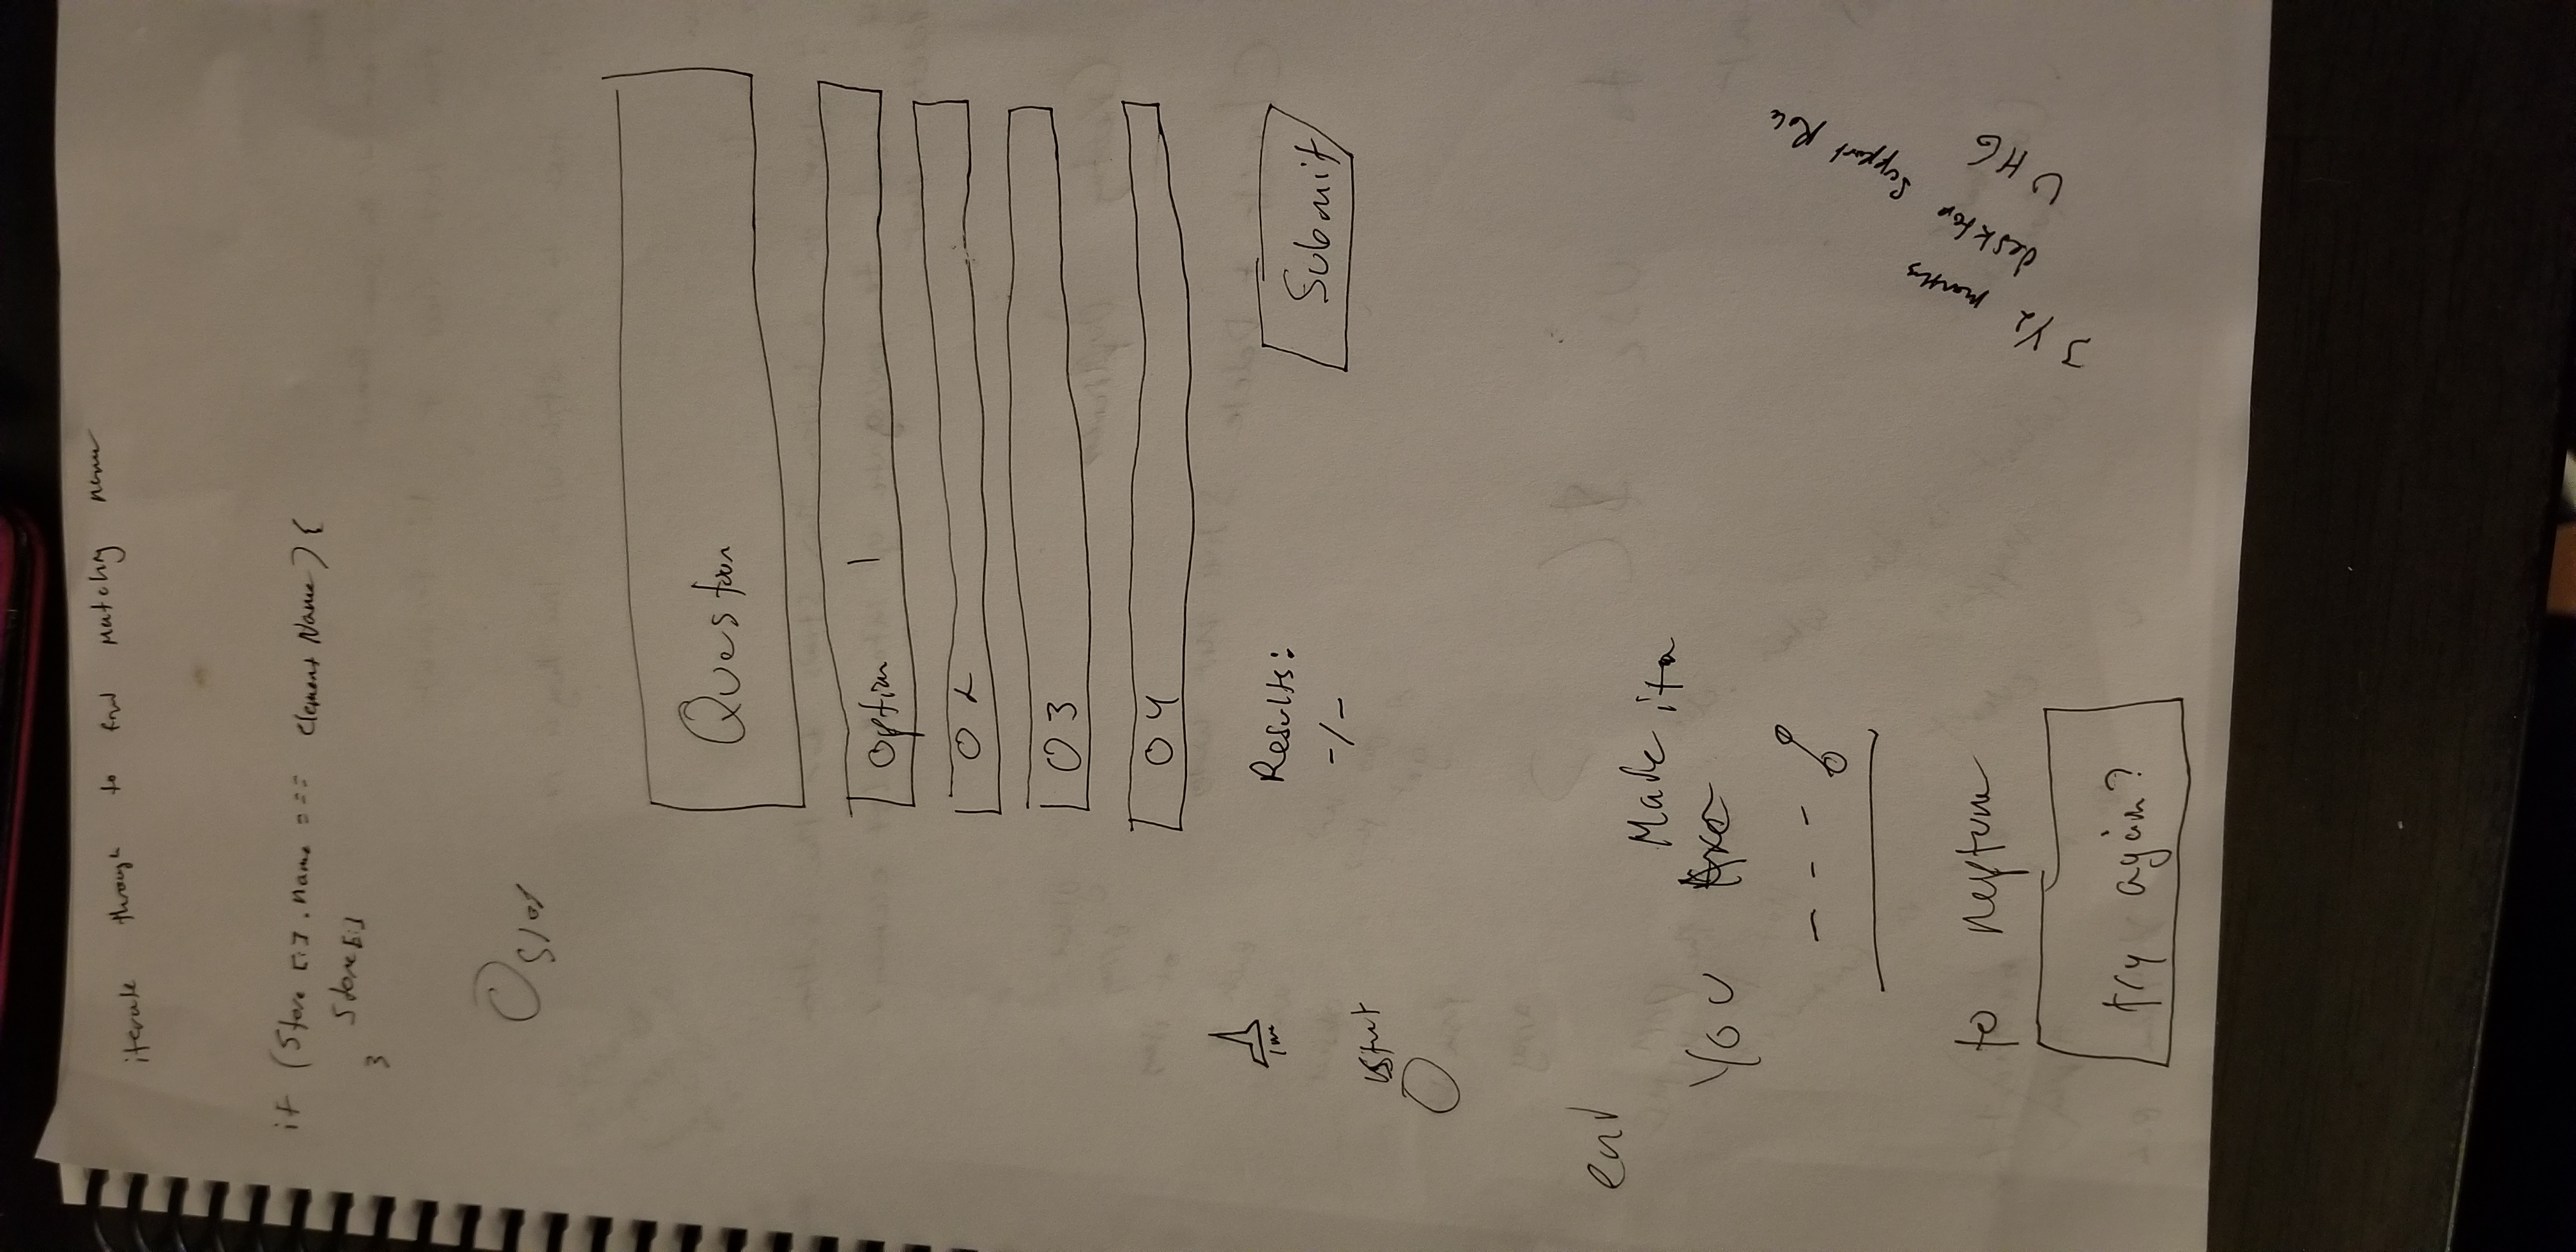 iterate through to find matching name
if (Store [i] . name === element Name) {
Store [i]
}
Question
Option 1
O 2
O 3
O 4
Results:
-/-
Submit
end
Made it
You
to neptune
try again?
3 1/2 months
desktop support Role
UHG